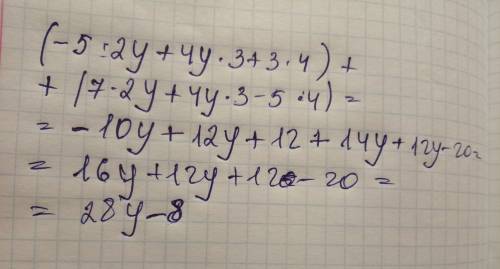 (-5·2y+4y·3+3·4)+
+(7·2y+4y·3-5·4)=
=-10y+12y+12+14y+12y-20=
=16y+12y+12-20=
=28y-8